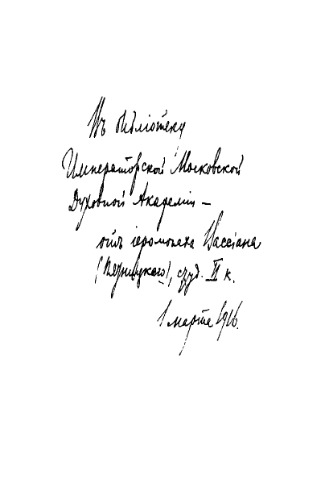 Въ библіотеку
Императорской Московской
Духовной Академіи –
отъ іеромонаха Вассіана
студ. II к.
1 марта 1916.